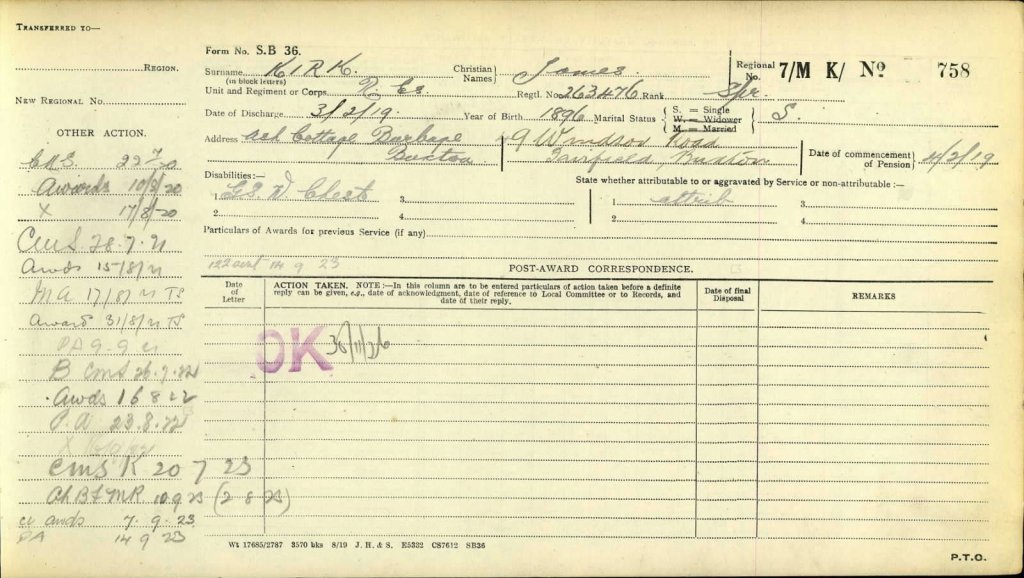 TRANSFERRED TO—
REGION.
NEW REGIONAL NO.
OTHER ACTION.
CMS. 22 7/20
Awards 10/8/20
X 17/8/20
CMS 28.7.21
Awds 15/8/21
MA 17/8/21 TS
Award 31/8/21 TS
PA 9.9.21
B CMS 26.7.22
Awds 16 8 22
P.A 23.8.22
CMS K 20 7 23
Ch B & MR 10 9 23 (2 8 23)
awds 7. 9. 23
PA 14 9 23
Form No. S.B 36.
Surname KIRK.
(in block letters)
Christian Names James
Regional No. 7/M K/ No 758
Unit and Regiment or Corps. R. Es
Regtl. No. 263476 Rank Spr.
Date of Discharge 3/2/19. Year of Birth 1896 Marital Status { S. = Single W. = Widower M. = Married } S.
Address Ash Cottage Burbage Buxton
9 Windsor Road Fairfield, Buxton
Date of commencement of Pension } 4/2/19
Disabilities:—
State whether attributable to or aggravated by Service or non-attributable:—
1 G.S.W Chest 3
2 4
1 attrib 3
2 4
Particulars of Awards for previous Service (if any)
14 9 23
POST-AWARD CORRESPONDENCE.
Date of Letter
ACTION TAKEN. NOTE:—In this column are to be entered particulars of action taken before a definite reply can be given, e.g., date of acknowledgment, date of reference to Local Committee or to Records, and date of their reply.
Date of final Disposal
REMARKS
OK 30/11/26
Wt 17685/2787 3570 bks 8/19 J. H. & S. E5332 CS7612 SB36
P.T.O.